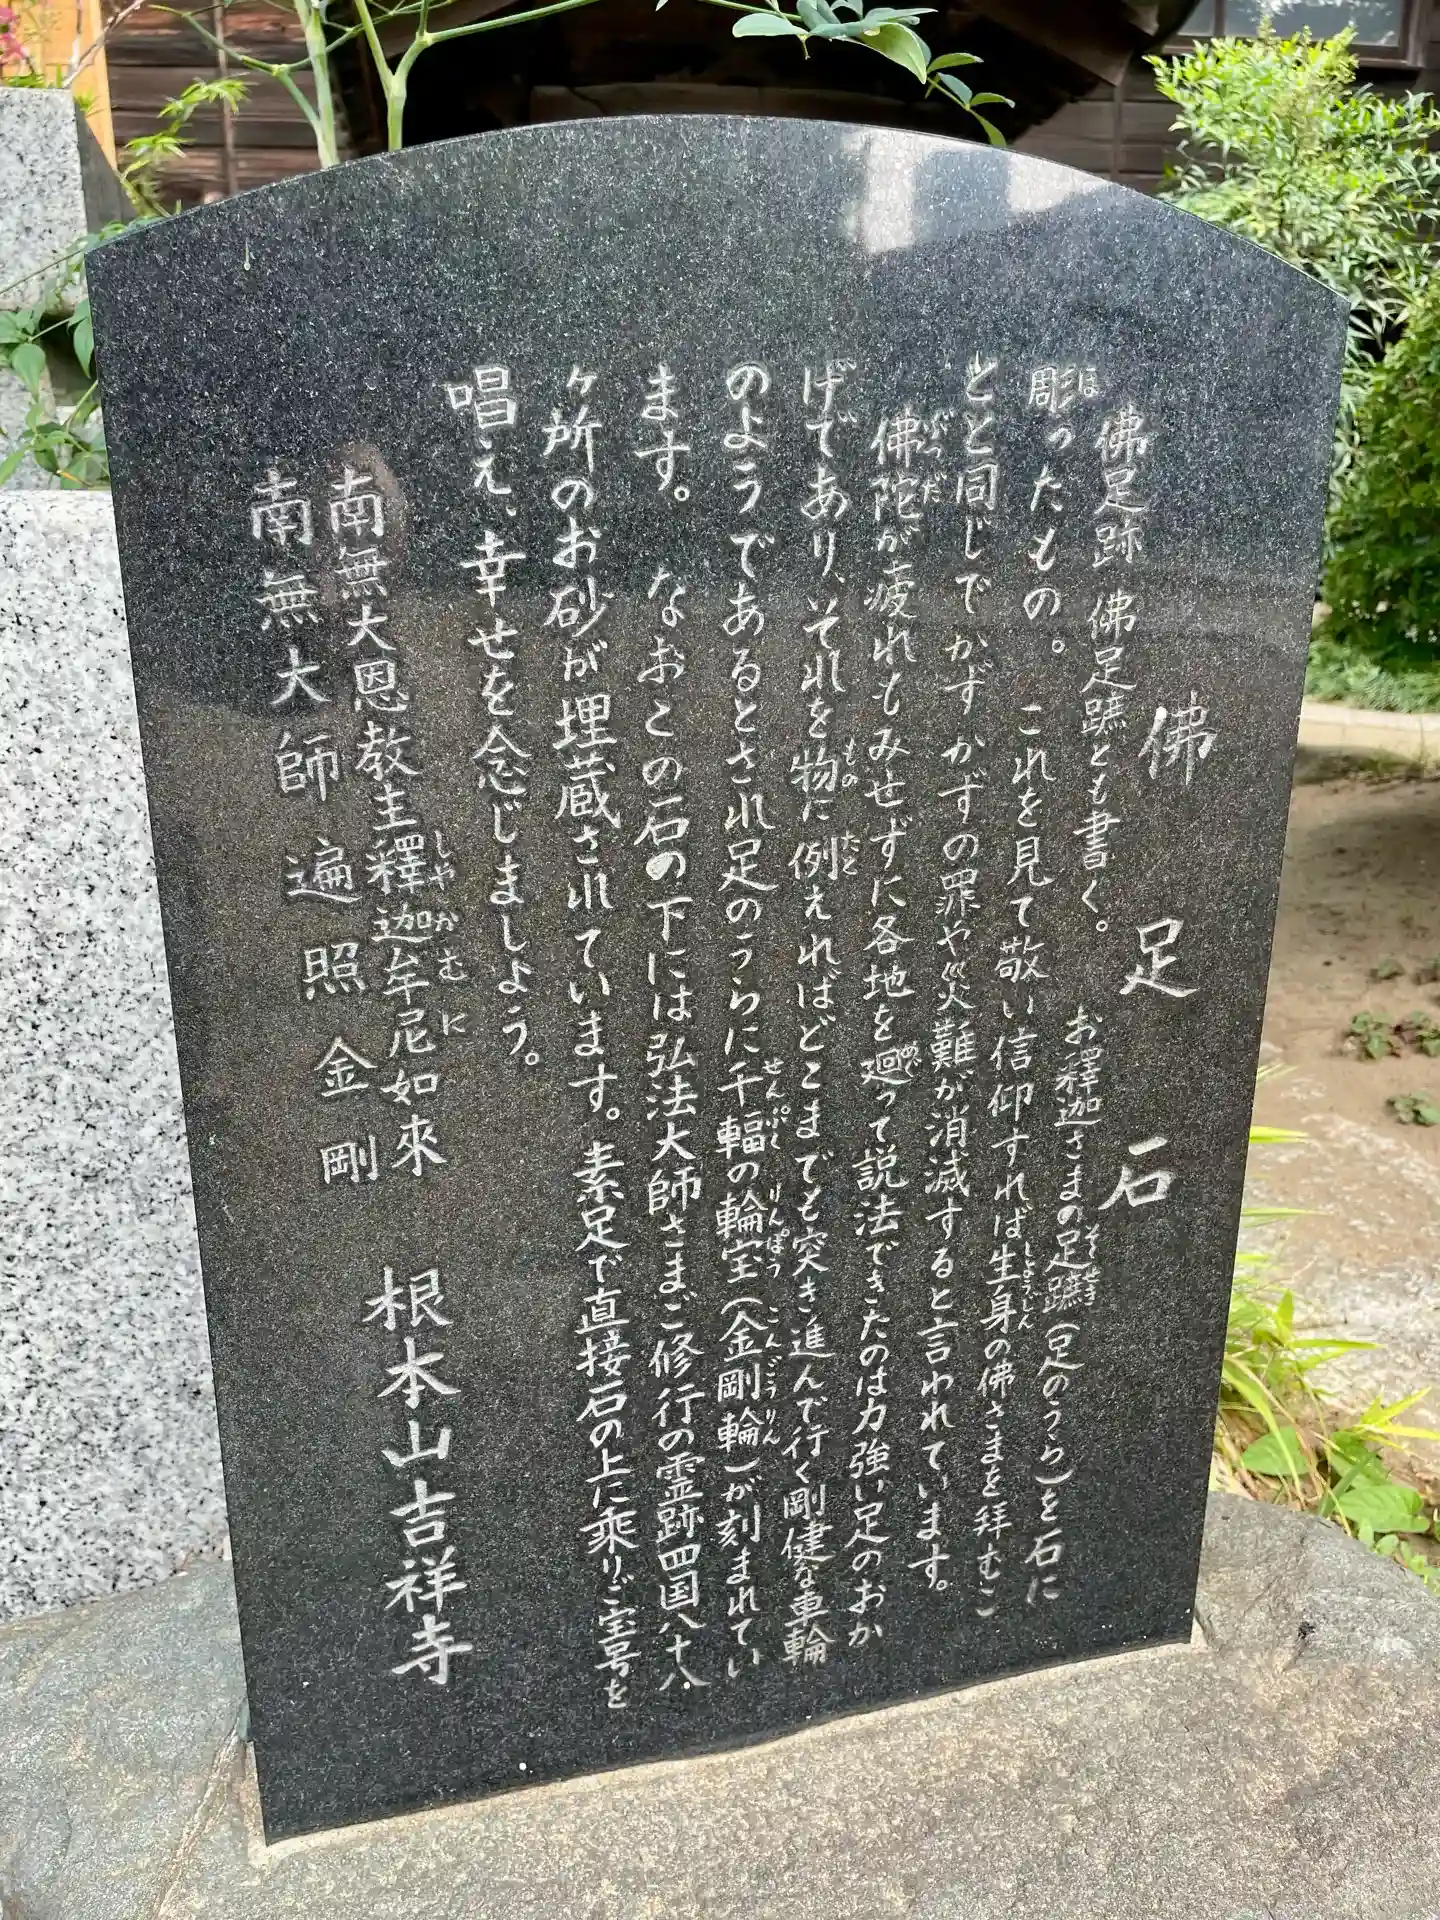 佛足石
佛足跡 佛足蹠とも書く。 お釋迦さまの足蹠(足のうら)を石に
彫ったもの。 これを見て敬い信仰すれば生身の佛さまを拜むこ
とと同じでかずかずの罪や災難が消滅すると言われています。
佛陀が疲れもみせずに各地を廻って説法できたのは力強い足のおか
げであり、それを物に例えればどこまでも突き進んで行く剛健な車輪
のようであるとされ足のうらに千輻の輪宝(金剛輪)が刻まれてい
ます。 なおこの石の下には弘法大師さまご修行の霊跡四国八十八
ヶ所のお砂が埋蔵されています。素足で直接石の上に乘りご宝号を
唱え、幸せを念じましょう。
南無大恩教主釋迦牟尼如來
南無大師遍照金剛
根本山吉祥寺